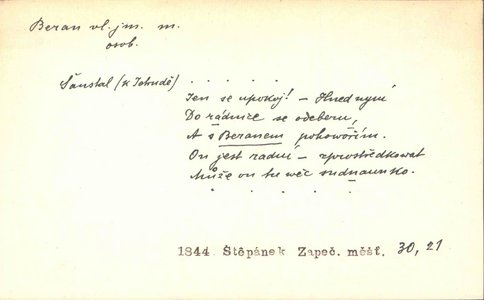 Beran vl. jm. m.
osob.
Šanstal (k Tetrudě) . . . . .
Jen se upokoj! – Hned nyní
Do rádnice se odeberu,
A s Beranem pohowořím.
On jest radní – zprostředkowat
Může on tu wěc snadnaunko.
. . . . .
1844 Štěpánek Zapeč. měšť. 30, 21